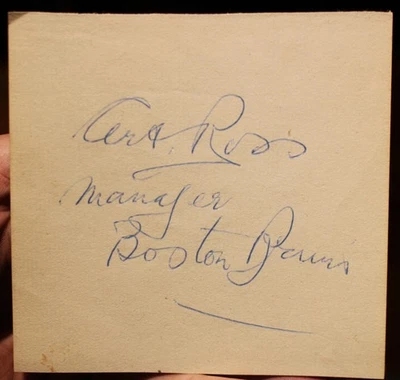 Art. Ross
Manager
Boston Bruins